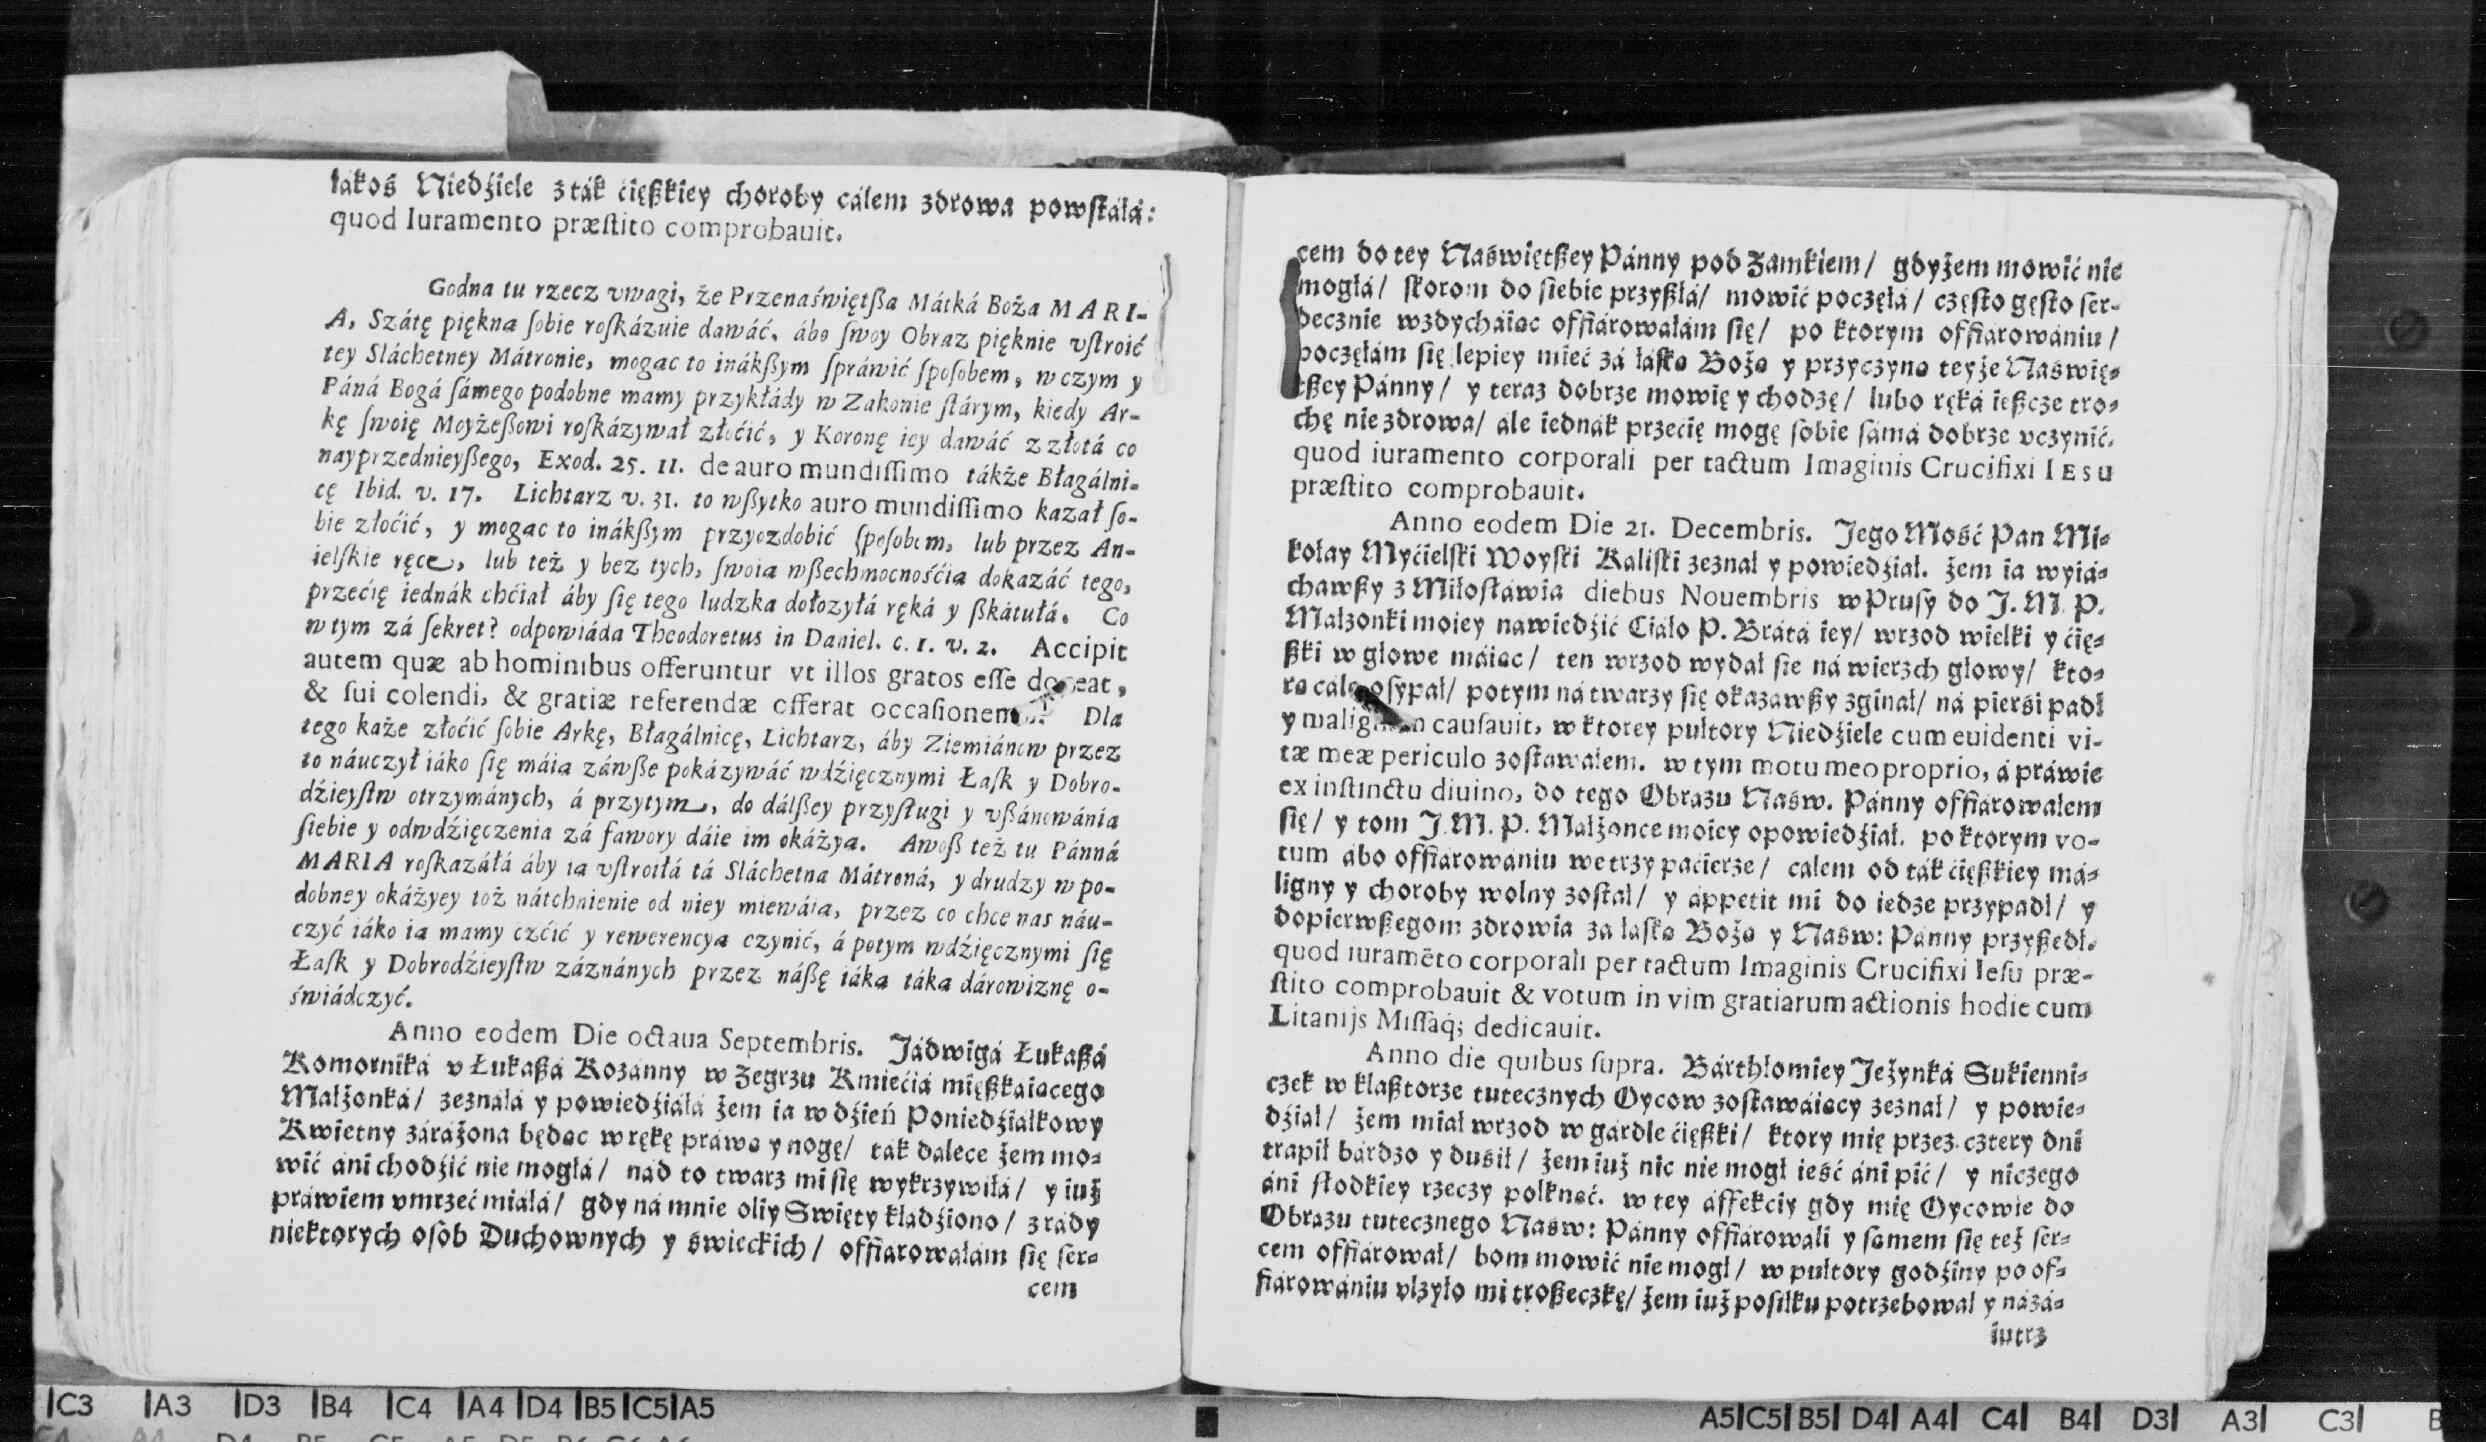 iákoś Niedźiele z ták ćięßkiey choroby cálem zdrowa powstáłá:
quod Iuramento præſtito comprobauit.
Godna tu rzecz vwagi, że Przenaświętßa Mátká Boża MARI-
A, Szátę piękna ſobie roſkázuie dawáć, ábo ſwoy Obraz pięknie vſtroić
tey Sláchetney Mátronie, mogac to inákßym ſpráwić ſpoſobem, w czym y
Páná Bogá ſámego podobne mamy przykłády w Zakonie ſtárym, kiedy Ar-
kę ſwoię Moyżeßowi roſkázywał złoćić, y Koronę iey dawáć z złotá co
nayprzednieyßego, Exod. 25. 11. de auro mundiſſimo tákże Błagálni-
cę Ibid. v. 17. Lichtarz v. 31. to wßytko auro mundiſſimo kazał ſo-
bie złoćić, y mogac to inákßym przyozdobić ſpoſobem, lub przez An-
ielſkie ręce, lub też y bez tych, ſwoia wßechmocnośćia dokazáć tego,
przećię iednák chćiał áby ſię tego ludzka dołozyłá ręká y ßkátułá. Co
w tym zá ſekret? odpowiáda Theodoretus in Daniel. c. 1. v. 2. Accipit
autem quæ ab hominibus offeruntur vt illos gratos eſſe doceat,
& ſui colendi, & gratiæ referendæ offerat occaſionem Dla
tego każe złoćić ſobie Arkę, Błagálnicę, Lichtarz, áby Ziemiánow przez
to náuczył iáko ſię máia záwße pokázywáć wdźięcznymi Łaſk y Dobro-
dźieyſtw otrzymánych, á przytym, do dálßey przyſługi y vßánowánia
ſiebie y odwdźięczenia zá fawory dáie im okáżya. Awoß też tu Pánná
MARIA roſkazáłá áby ia vſtroiłá tá Sláchetna Mátroná, y drudzy w po-
dobney okáżyey toż nátchnienie od niey miewáia, przez co chce nas náu-
czyć iáko ia mamy czćić y rewerencya czynić, á potym wdźięcznymi ſię
Łaſk y Dobrodźieyſtw záznánych przez náßę iáka táka dárowiznę o-
świádczyć.
Anno eodem Die octaua Septembris. Jádwigá Łukaßá
Komorniká v Łukaßá Kozánny w Zegrzu Kmiećiá mięßkáiącego
Małżonká/ zeználá y powiedźiáłá żem ia w dźień Poniedźiałkowy
Kwietny záráżona będąc w rękę práwą y nogę/ ták dalece żem mo-
wić áni chodźić nie mogłá/ nád to twarz mi się wykrzywiłá/ y iuż
práwiem vmrzeć miáłá/ gdy ná mnie oliy Swięty kładźiono/ z rády
niektorych osob Duchownych y świeckich/ offiarowáłám się ser-
cem
cem do tey Naświętßey Pánny pod Zamkiem/ gdyżem mowić nie
mogłá/ skorom do siebie przyßłá/ mowić poczęłá/ często gęsto ser-
decznie wzdycháiąc offiárowáłám się/ po ktorym offiárowániu/
poczęłám się lepiey mieć zá łáską Bożą y przyczyną teyże Naświę-
tßey Pánny/ y teraz dobrze mowię y chodzę/ lubo ręká ießcze tro-
chę niezdrowa/ ále iednák przećię mogę sobie sámá dobrze vczynić.
quod iuramento corporali per tactum Imaginis Crucifixi IESU
præſtito comprobauit.
Anno eodem Die 21. Decembris. Jego Mość Pan Mi-
kołay Myćielski Woyski Kaliski zeznał y powiedźiał. żem ia wyiá-
chawßy z Miłosławia diebus Nouembris w Prusy do J. M. P.
Małzonki moiey náwiedźić Ciáło P. Brátá iey/ wrzod wielki y ćię-
ßki w głowe máiąc/ ten wrzod wydał sie ná wierzch głowy/ kto-
rą osypał/ potym ná twarzy się okazawßy zginął/ ná pierśi padł
y causauit, w ktorey pułtory Niedźiele cum euidenti vi-
tæ meæ periculo zostawałem. w tym motu meo proprio, á práwie
ex inſtinctu diuino, do tego Obrazu Naśw. Pánny offiárowałem
się/ y tom J. M. P. Małżonce moiey opowiedźiał. po ktorym vo-
tum ábo offiárowániu we trzy páćierze/ cáłem od ták ćięßkiey má-
ligny y choroby wolny został/ y áppetit mi do iedze przypadł/ y
dopierwßegom zdrowia zá łaską Bożą y Naśw: Pánny przyßedł.
quod iuramēto corporali per tactum Imaginis Crucifixi Ieſu præ-
ſtito comprobauit & votum in vim gratiarum actionis hodie cum
Litanijs Miſſaq; dedicauit.
Anno die quibus ſupra. Bárthłomiey Jeżynká Sukienni-
czek w klaßtorze tutecznych Oycow zostawáiący zeznał/ y powie-
dźiał/ żem miał wrzod w gárdle ćięßki/ ktory mię przez cztery dni
trapił bárdzo y duśił/ żem iuż nic nie mogł ieść áni pić/ y niczego
áni słodkiey rzeczy połknąć. w tey áffekciy gdy mię Oycowie do
Obrazu tutecznego Naśw: Pánny offiárowáli y samem się też ser-
cem offiárował/ bom mowić nie mogł/ w pułtory godźiny po of-
fiárowániu vlzyło mi troßeczkę/ żem iuż posiłku potrzebował y názá-
iutrz
C3 A3 D3 B4 C4 A4 D4 B5 C5 A5
A5 C5 B5 D4 A4 C4 B4 D3 A3 C3 B